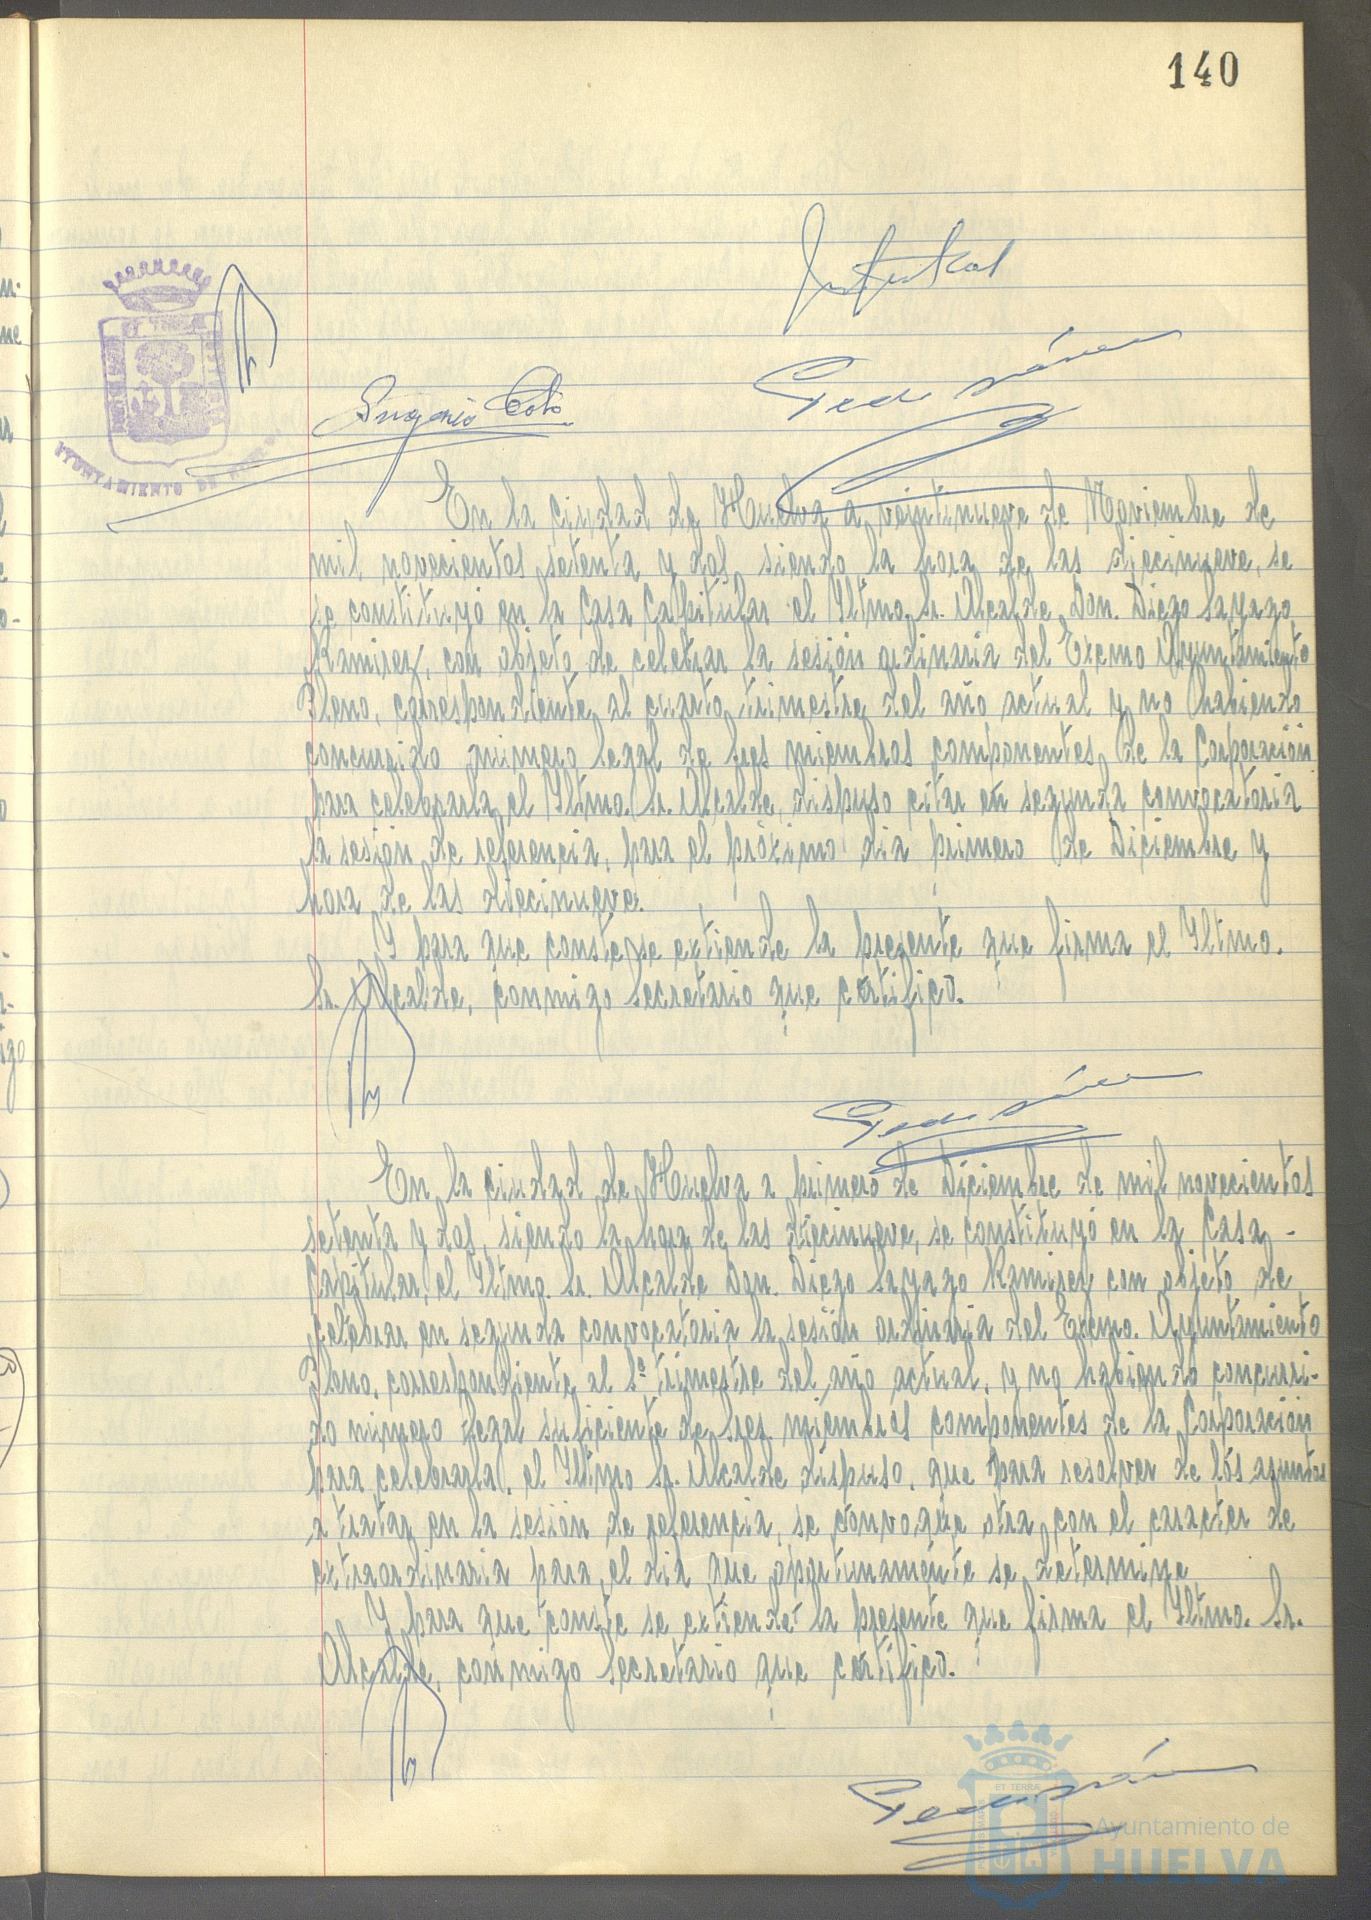 140
Eugenio Coto
AYUNTAMIENTO DE
En la ciudad de Huelva a veintinueve de Noviembre de
mil novecientos setenta y dos, siendo la hora de las diecinueve, se
se constituyó en la Casa Capitular el Iltmo. Sr. Alcalde Don. Diego Sayago
Ramirez, con objeto de celebrar la sesión ordinaria del Excmo Ayuntamiento
Pleno, correspondiente al cuarto trimestre del año actual y no habiendo
concurrido número legal de Sres miembros componentes de la Corporación
para celebrarla, el Iltmo. Sr. Alcalde, dispuso citar en segunda convocatoria
la sesión de referencia, para el próximo dia primero de Diciembre y
hora de las diecinueve.
Y para que conste, se extiende la presente que firma el Iltmo.
Sr. Alcalde, conmigo Secretario que certifico.
En la ciudad de Huelva a primero de Diciembre de mil novecientos
setenta y dos, siendo la hora de las diecinueve, se constituyó en la Casa -
Capitular, el Iltmo. Sr. Alcalde Don. Diego Sayago Ramirez con objeto de
celebrar en segunda convocatoria la sesión ordinaria del Excmo. Ayuntamiento
Pleno, correspondiente al trimestre del año actual, y no habiendo concurri-
do número legal suficiente de Sres. miembros componentes de la Corporación
para celebrarla, el Iltmo Sr. Alcalde dispuso, que para resolver de los asuntos
a tratar en la sesión de referencia, se convoque otra con el caracter de
extraordinaria para el dia que oportunamente se determine
Y para que conste se extiende la presente que firma el Iltmo. Sr.
Alcalde, conmigo Secretario que certifico.
ET TERRÆ
Ayuntamiento de
HUELVA